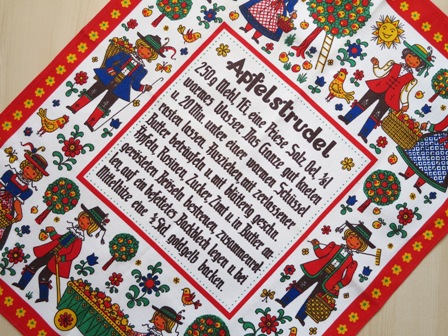 Apfelstrudel
250g Mehl, 1 Ei, eine Prise Salz, Oel, 1/8 l
warmes Wasser. Teig Ganze gut kneten
u. 20 Min. unter einer warmen Schüssel
rasten lassen. Ausziehen, mit zerlassener
Butter beträufeln u. mit blättrig geschn.
Äpfel, Rosinen, Zucker, Zimt u. in Butter an-
gerösteten Bröseln bestreuen, zusammenrol-
len, auf ein befettetes Backblech legen u. bei
Mittelhitze eine 3/4 Std. goldgelb backen.